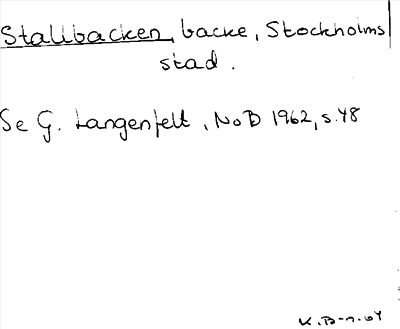 Stallbacken, backe, Stockholms
stad.
Se G. Langenfelt, NoB 1962, s. 48
K. B-n. 64